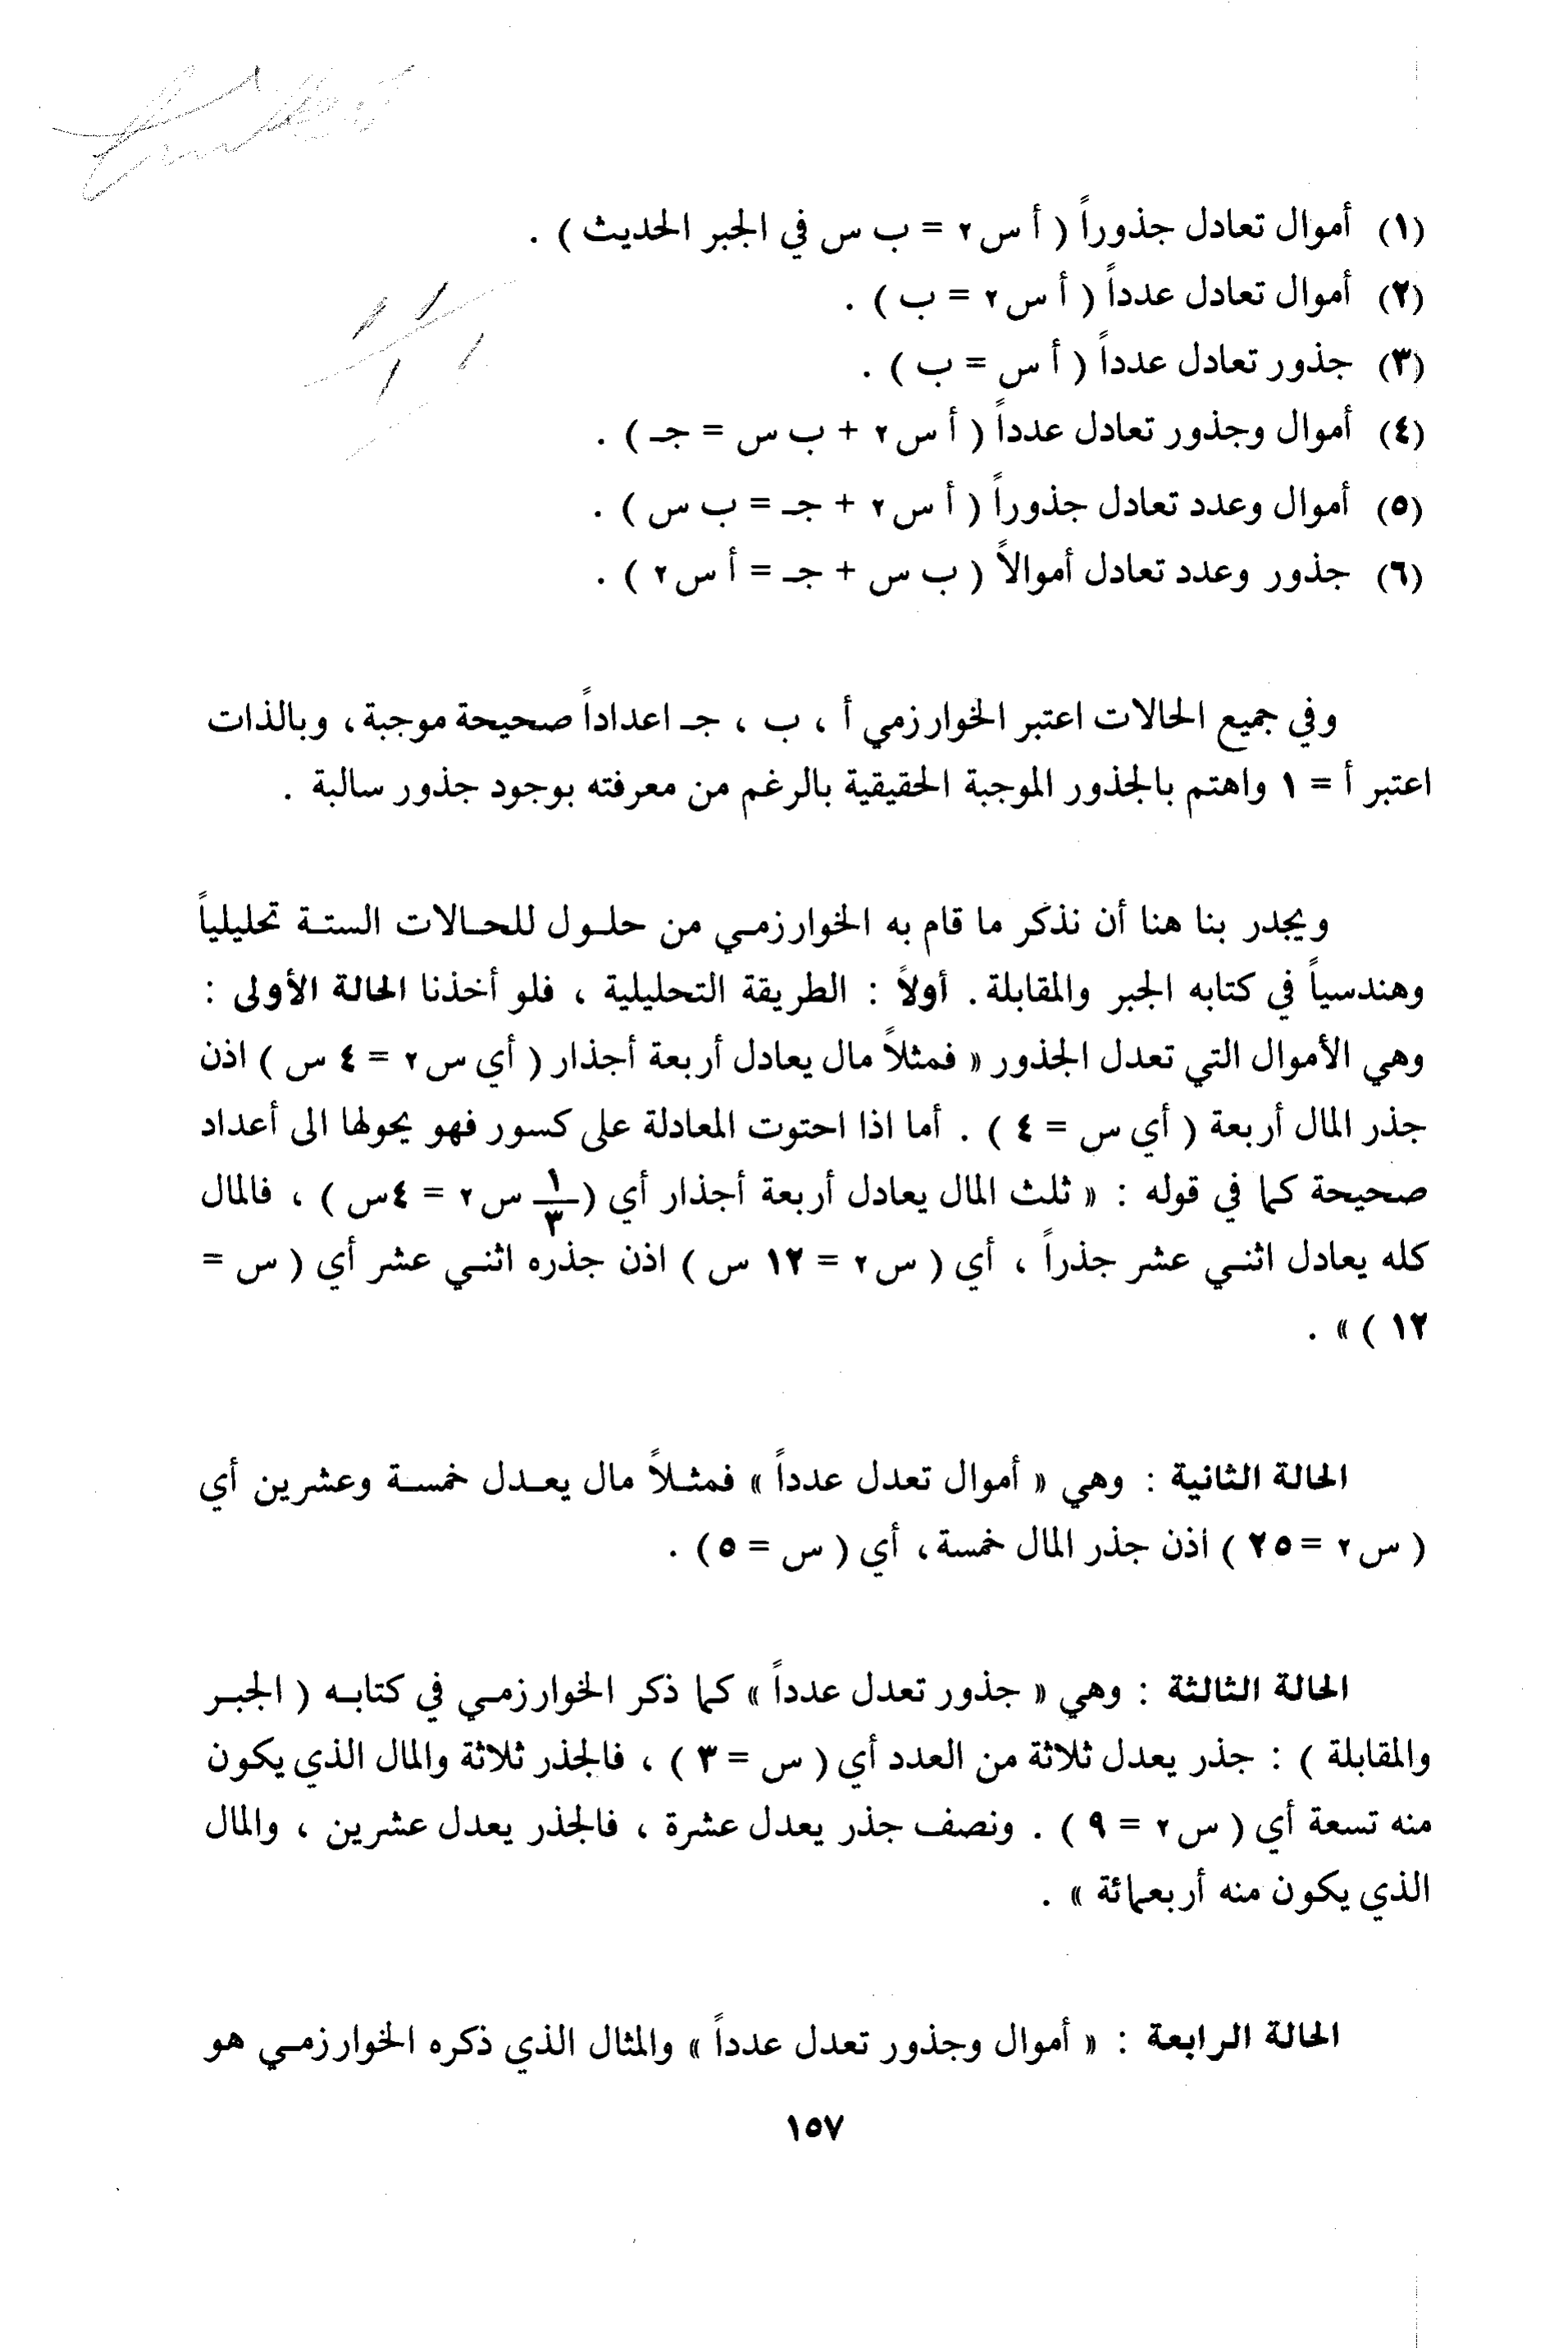 (١) أموال تعادل جذوراً ( أ س٢ = ب س في الجبر الحديث ) .
(٢) أموال تعادل عدداً ( أ س٢ = ب ) .
(٣) جذور تعادل عدداً ( أ س = ب ) .
(٤) أموال وجذور تعادل عدداً ( أ س٢ + ب س = جـ ) .
(٥) أموال وعدد تعادل جذوراً ( أ س٢ + جـ = ب س ) .
(٦) جذور وعدد تعادل أموالاً ( ب س + جـ = أ س٢ ) .
وفي جميع الحالات اعتبر الخوارزمي أ ، ب ، جـ اعداداً صحيحة موجبة ، وبالذات
اعتبر أ = ١ واهتم بالجذور الموجبة الحقيقية بالرغم من معرفته بوجود جذور سالبة .
ويجدر بنا هنا أن نذكر ما قام به الخوارزمي من حلول للحالات الستة تحليلياً
وهندسياً في كتابه الجبر والمقابلة . أولاً : الطريقة التحليلية ، فلو أخذنا الحالة الأولى :
وهي الأموال التي تعدل الجذور « فمثلاً مال يعادل أربعة أجذار ( أي س٢ = ٤ س ) اذن
جذر المال أربعة ( أي س = ٤ ) . أما اذا احتوت المعادلة على كسور فهو يحولها الى أعداد
صحيحة كما في قوله : « ثلث المال يعادل أربعة أجذار أي ( ١/٣ س٢ = ٤س ) ، فالمال
كله يعادل اثني عشر جذراً ، أي ( س٢ = ١٢ س ) اذن جذره اثني عشر أي ( س =
١٢ ) » .
الحالة الثانية : وهي « أموال تعدل عدداً » فمثلاً مال يعدل خمسة وعشرين أي
( س٢ = ٢٥ ) اذن جذر المال خمسة ، أي ( س = ٥ ) .
الحالة الثالثة : وهي « جذور تعدل عدداً » كما ذكر الخوارزمي في كتابه ( الجبر
والمقابلة ) : جذر يعدل ثلاثة من العدد أي ( س = ٣ ) ، فالجذر ثلاثة والمال الذي يكون
منه تسعة أي ( س٢ = ٩ ) . ونصف جذر يعدل عشرة ، فالجذر يعدل عشرين ، والمال
الذي يكون منه أربعمائة » .
الحالة الرابعة : « أموال وجذور تعدل عدداً » والمثال الذي ذكره الخوارزمي هو
١٥٧